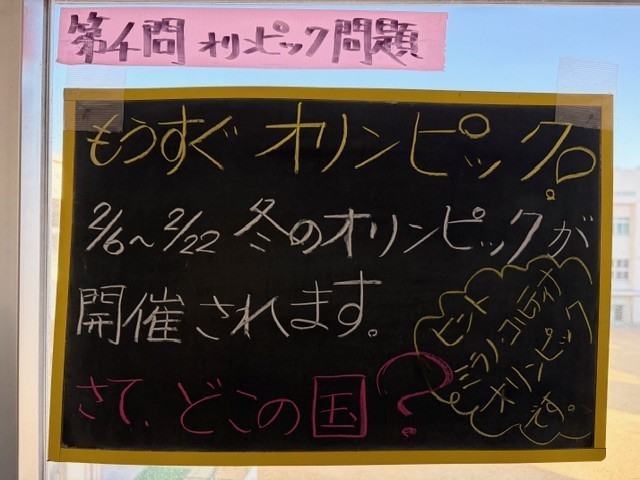 第4問 オリンピック問題
もうすぐ オリンピック。
2/6~2/22 冬のオリンピックが
開催されます。
さて、どこの国?
ヒント
ミラノ・コルティナ
オリンピック
です。